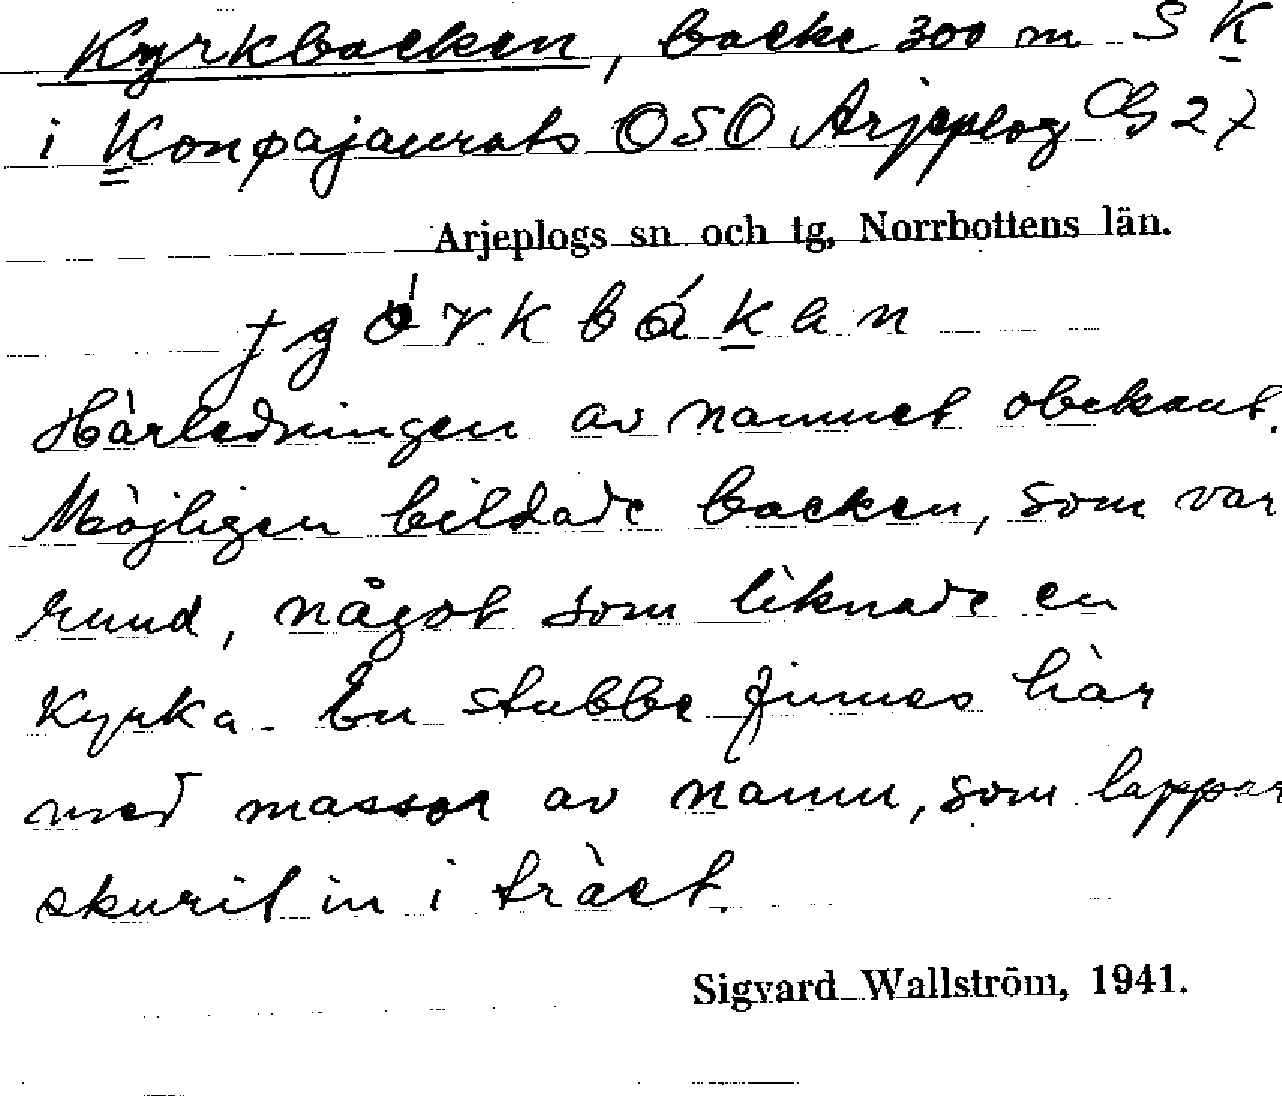 Kyrkbacken, backe 300 m S K
i Konpajaurats OSO Arjeplog G 27
Arjeplogs sn och tg, Norrbottens län.
bákan
Härledningen av namnet obekant.
Möjligen bildade backen, som var
rund, något som liknade en
kyrka. En stubbe finnes här
med massor av namn, som lappar
skurit in i träet.
Sigvard Wallström, 1941.